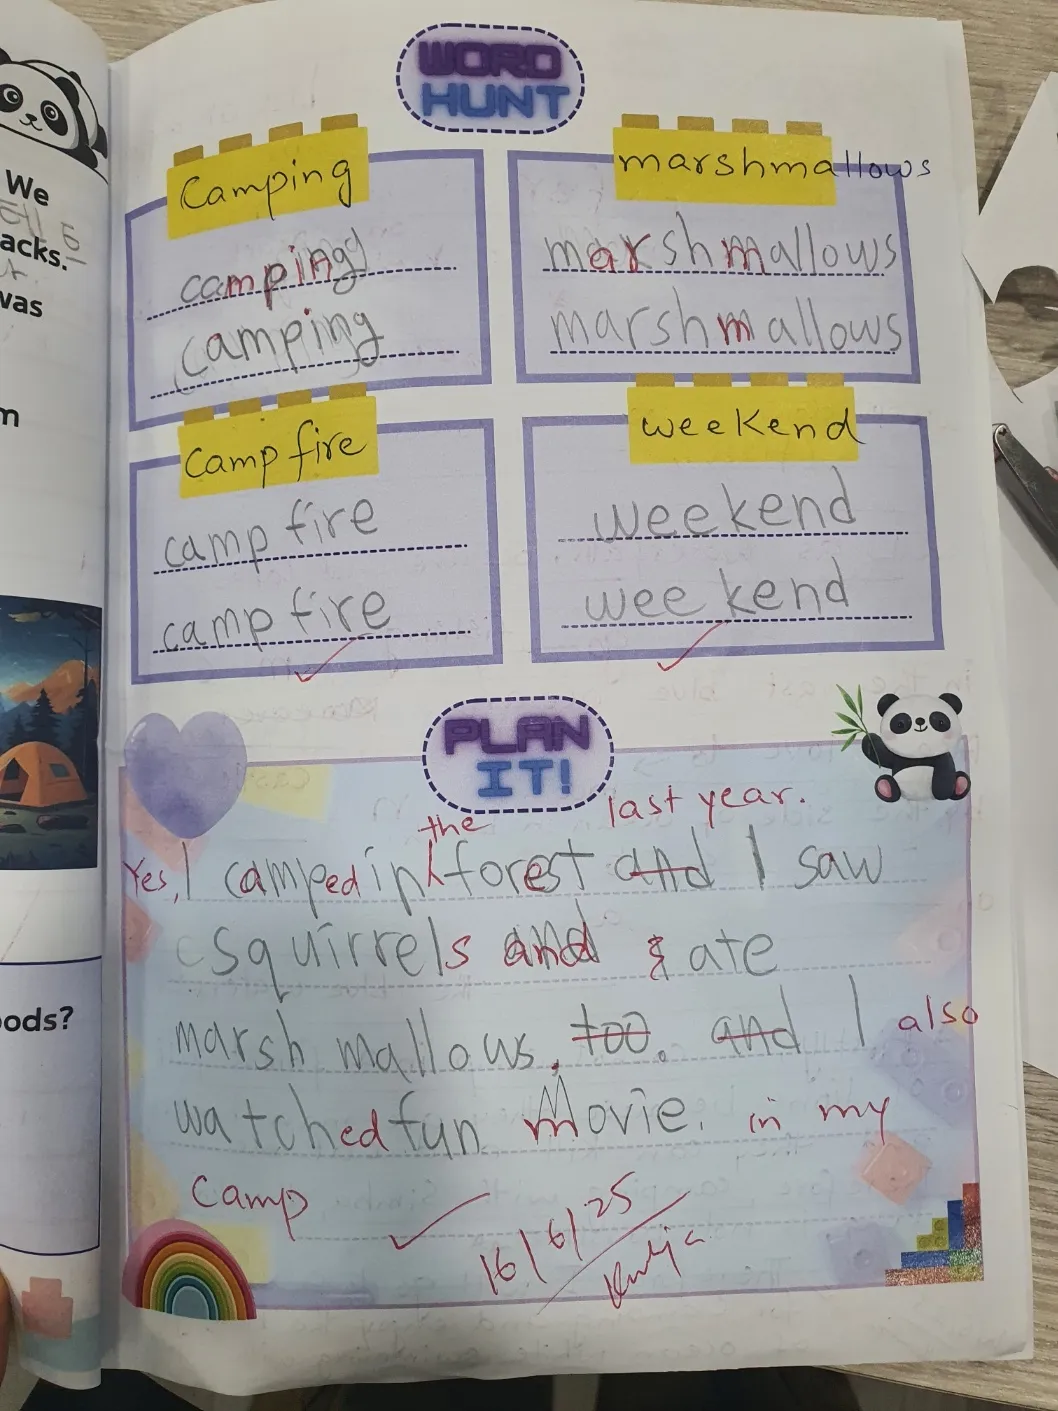 We
acks.
was
m
oods?
WORD
HUNT
Camping
camping
camping
marshmallows
marshmallows
marshmallows
Campfire
campfire
campfire
weekend
weekend
weekend
PLAN
IT!
the last year.
Yes, I camped in forest and I saw
squirrels and & ate
marshmallows. too. and I also
watched fun Movie. in my
Camp
16/6/25